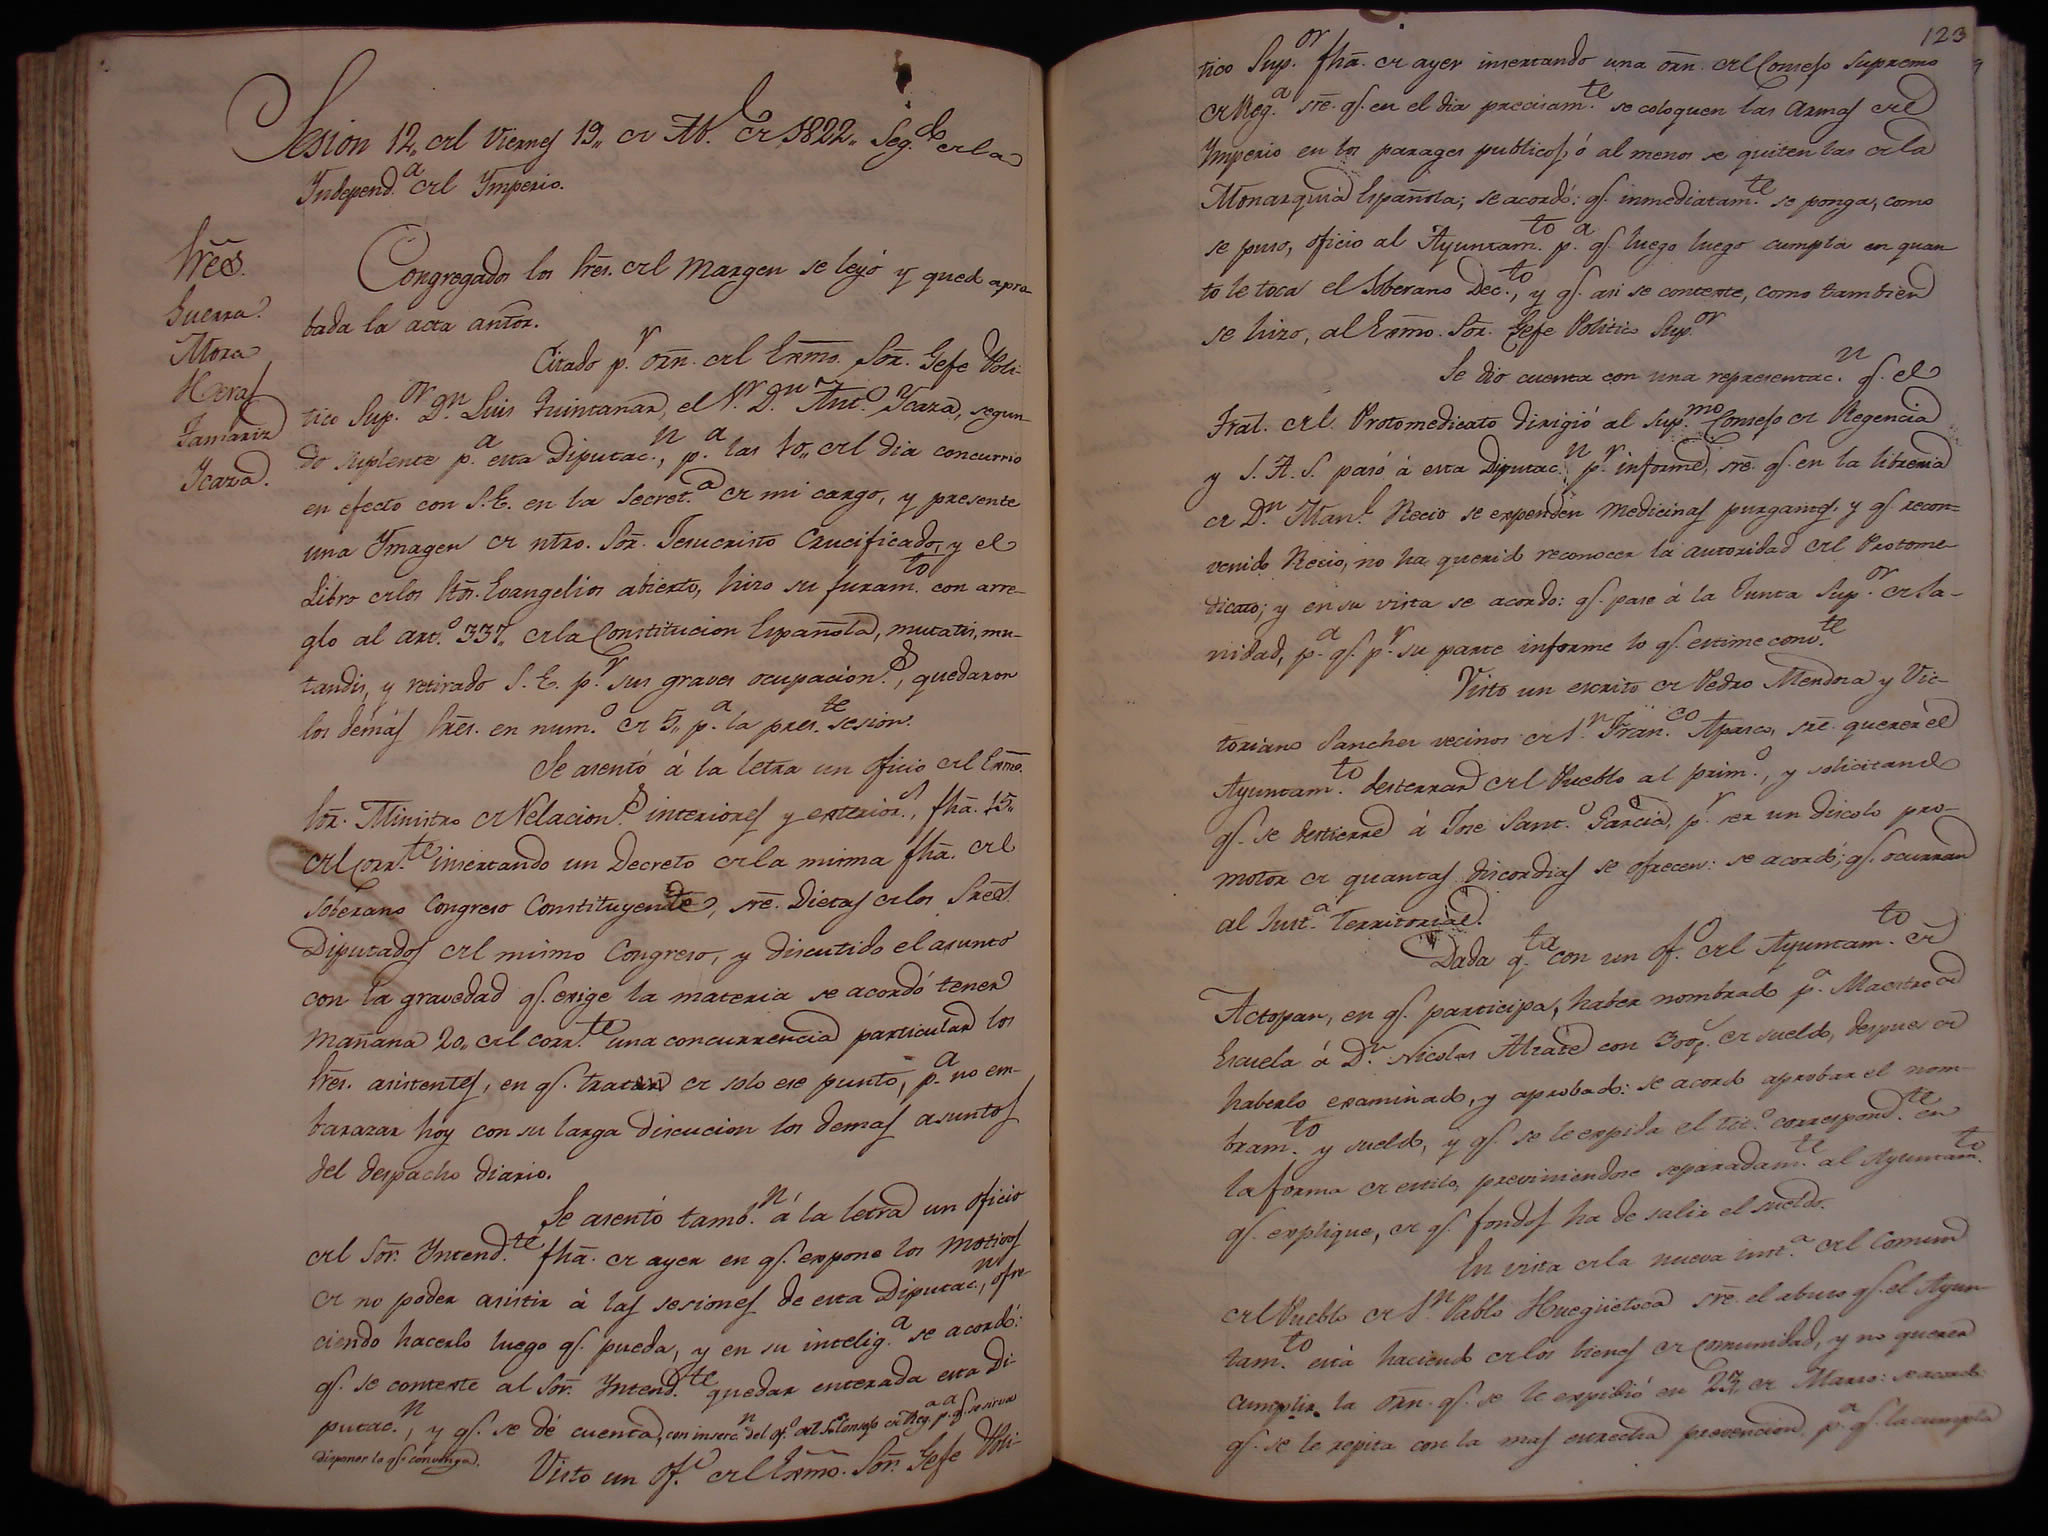 Sesion 12,, del Viernes 19,, de Ab.l de 1822,, Seg.do de la
Independ.a del Ymperio.
Sres.
Guerra.
Mora
Heras
Tamariz
Ycaza.
Congregados los Sres. del margen se leyó y quedó apro-
bada la acta antor.
Citado p.r orn. del Exmo. Sor. Gefe Poli-
tico Sup.or D.n Luis Quintanar, el S.r D.n Ant.o Ycaza, segun-
do suplente p.a esta Diputac.n, p.a las 10,, del dia concurrió
en efecto con S.E. en la Secret.a de mi cargo, y presente
una Ymagen de ntro. Sor. Jesucristo Crucificado, y el
Libro de los Stos. Evangelios abierto, hizo su juram.to con arre-
glo al art.o 337,, de la Constitucion Española, mutatis, mu-
tandis, y retirado S.E. p.r sus graves ocupacion.s, quedaron
los demás Sres. en num.o de 5,, p.a la pres.te sesion.
Se asentó á la letra un oficio del Exmo.
Sor. Ministro de Relacion.s interiores y exterior.s, fha. 15,,
del corr.te insertando un Decreto de la misma fha. del
Soberano Congreso Constituyente, sre. Dietas de los Sres.
Diputados del mismo Congreso, y discutido el asunto
con la gravedad q.e exige la materia se acordó tener
mañana 20,, del corr.te una concurrencia particular los
Sres. asistentes, en q.e tratar de solo ese punto, p.a no em-
barazar hoy con su larga discucion los demas asuntos
del despacho diario.
Se asentó tamb.n á la letra un oficio
del Sor. Yntend.te fha. de ayer en q.e expone los motivos
de no poder asistir á las sesiones de esta Diputac.n, ofre-
ciendo hacerlo luego q.e pueda, y en su intelig.a se acordó:
q.e se conteste al Sor. Yntend.te quedar enterada esta Di-
putac.n, y q.e se dé cuenta, con inserc.n del of.o al S. Consejo de Reg.a p.a q.e se sirva
disponer lo q.e convenga.
Visto un of.o del Exmo. Sor. Gefe Poli-
123
tico Sup.or fha. de ayer insertando una orn. del Consejo Supremo
de Reg.a sre. q.e en el dia precisam.te se coloquen las armas del
Ymperio en los parages publicos, ó al menos se quiten las de la
Monarquia Española; se acordó: q.e inmediatam.te se ponga, como
se puso, oficio al Ayuntam.to p.a q.e luego luego cumpla en quan
to le toca el Soberano Dec.to, y q.e asi se conteste, como tambien
se hizo, al Exmo. Sor. Gefe Politico Sup.or
Se dió cuenta con una representac.n q.e el
Tral. del Protomedicato dirigió al Sup.mo Consejo de Regencia
y S.A.S. pasó á esta Diputac.n p.r informe, sre. q.e en la libreria
de D.n Man.l Recio se expenden medicinas purgantes, y q.e recon-
venido Recio, no ha querido reconocer la autoridad del Protome-
dicato; y en su vista se acordó: q.e pase á la Junta Sup.or de Sa-
nidad, p.a q.e p.r su parte informe lo q.e estime conv.te
Visto un escrito de Pedro Mendoza y Vic-
toriano Sanchez vecinos de S.n Fran.co Apasco, sre. querer el
Ayuntam.to desterrar del Pueblo al prim.o, y solicitando
q.e se destierre á Jose Sant.o Garcia, p.r ser un discolo pro-
motor de quantas discordias se ofrecen: se acordó; q.e ocurran
al Just.a Territorial.
Dada q.ta con un of.o del Ayuntam.to de
Actopan, en q.e participa, haber nombrado p.a Maestro de
Escuela á D.n Nicolas Alzate con 300p.s de sueldo, despues de
haberlo examinado, y aprobado: se acordó aprobar el nom-
bram.to y sueldo, y q.e se le expida el tit.o correspond.te en
la forma de estilo, previniendose separadam.te al Ayuntam.to
q.e explique, de q.e fondos ha de salir el sueldo.
En vista de la nueva inst.a del Comun
del Pueblo de S.n Pablo Huegüetoca sre. el abuso q.e el Ayun
tam.to está haciendo de los bienes de Comunidad, y no querer
cumplir la orn. q.e se le expidió en 23,, de Marzo: se acordó:
q.e se le repita con la mas estrecha prevencion p.a q.e la cumpla